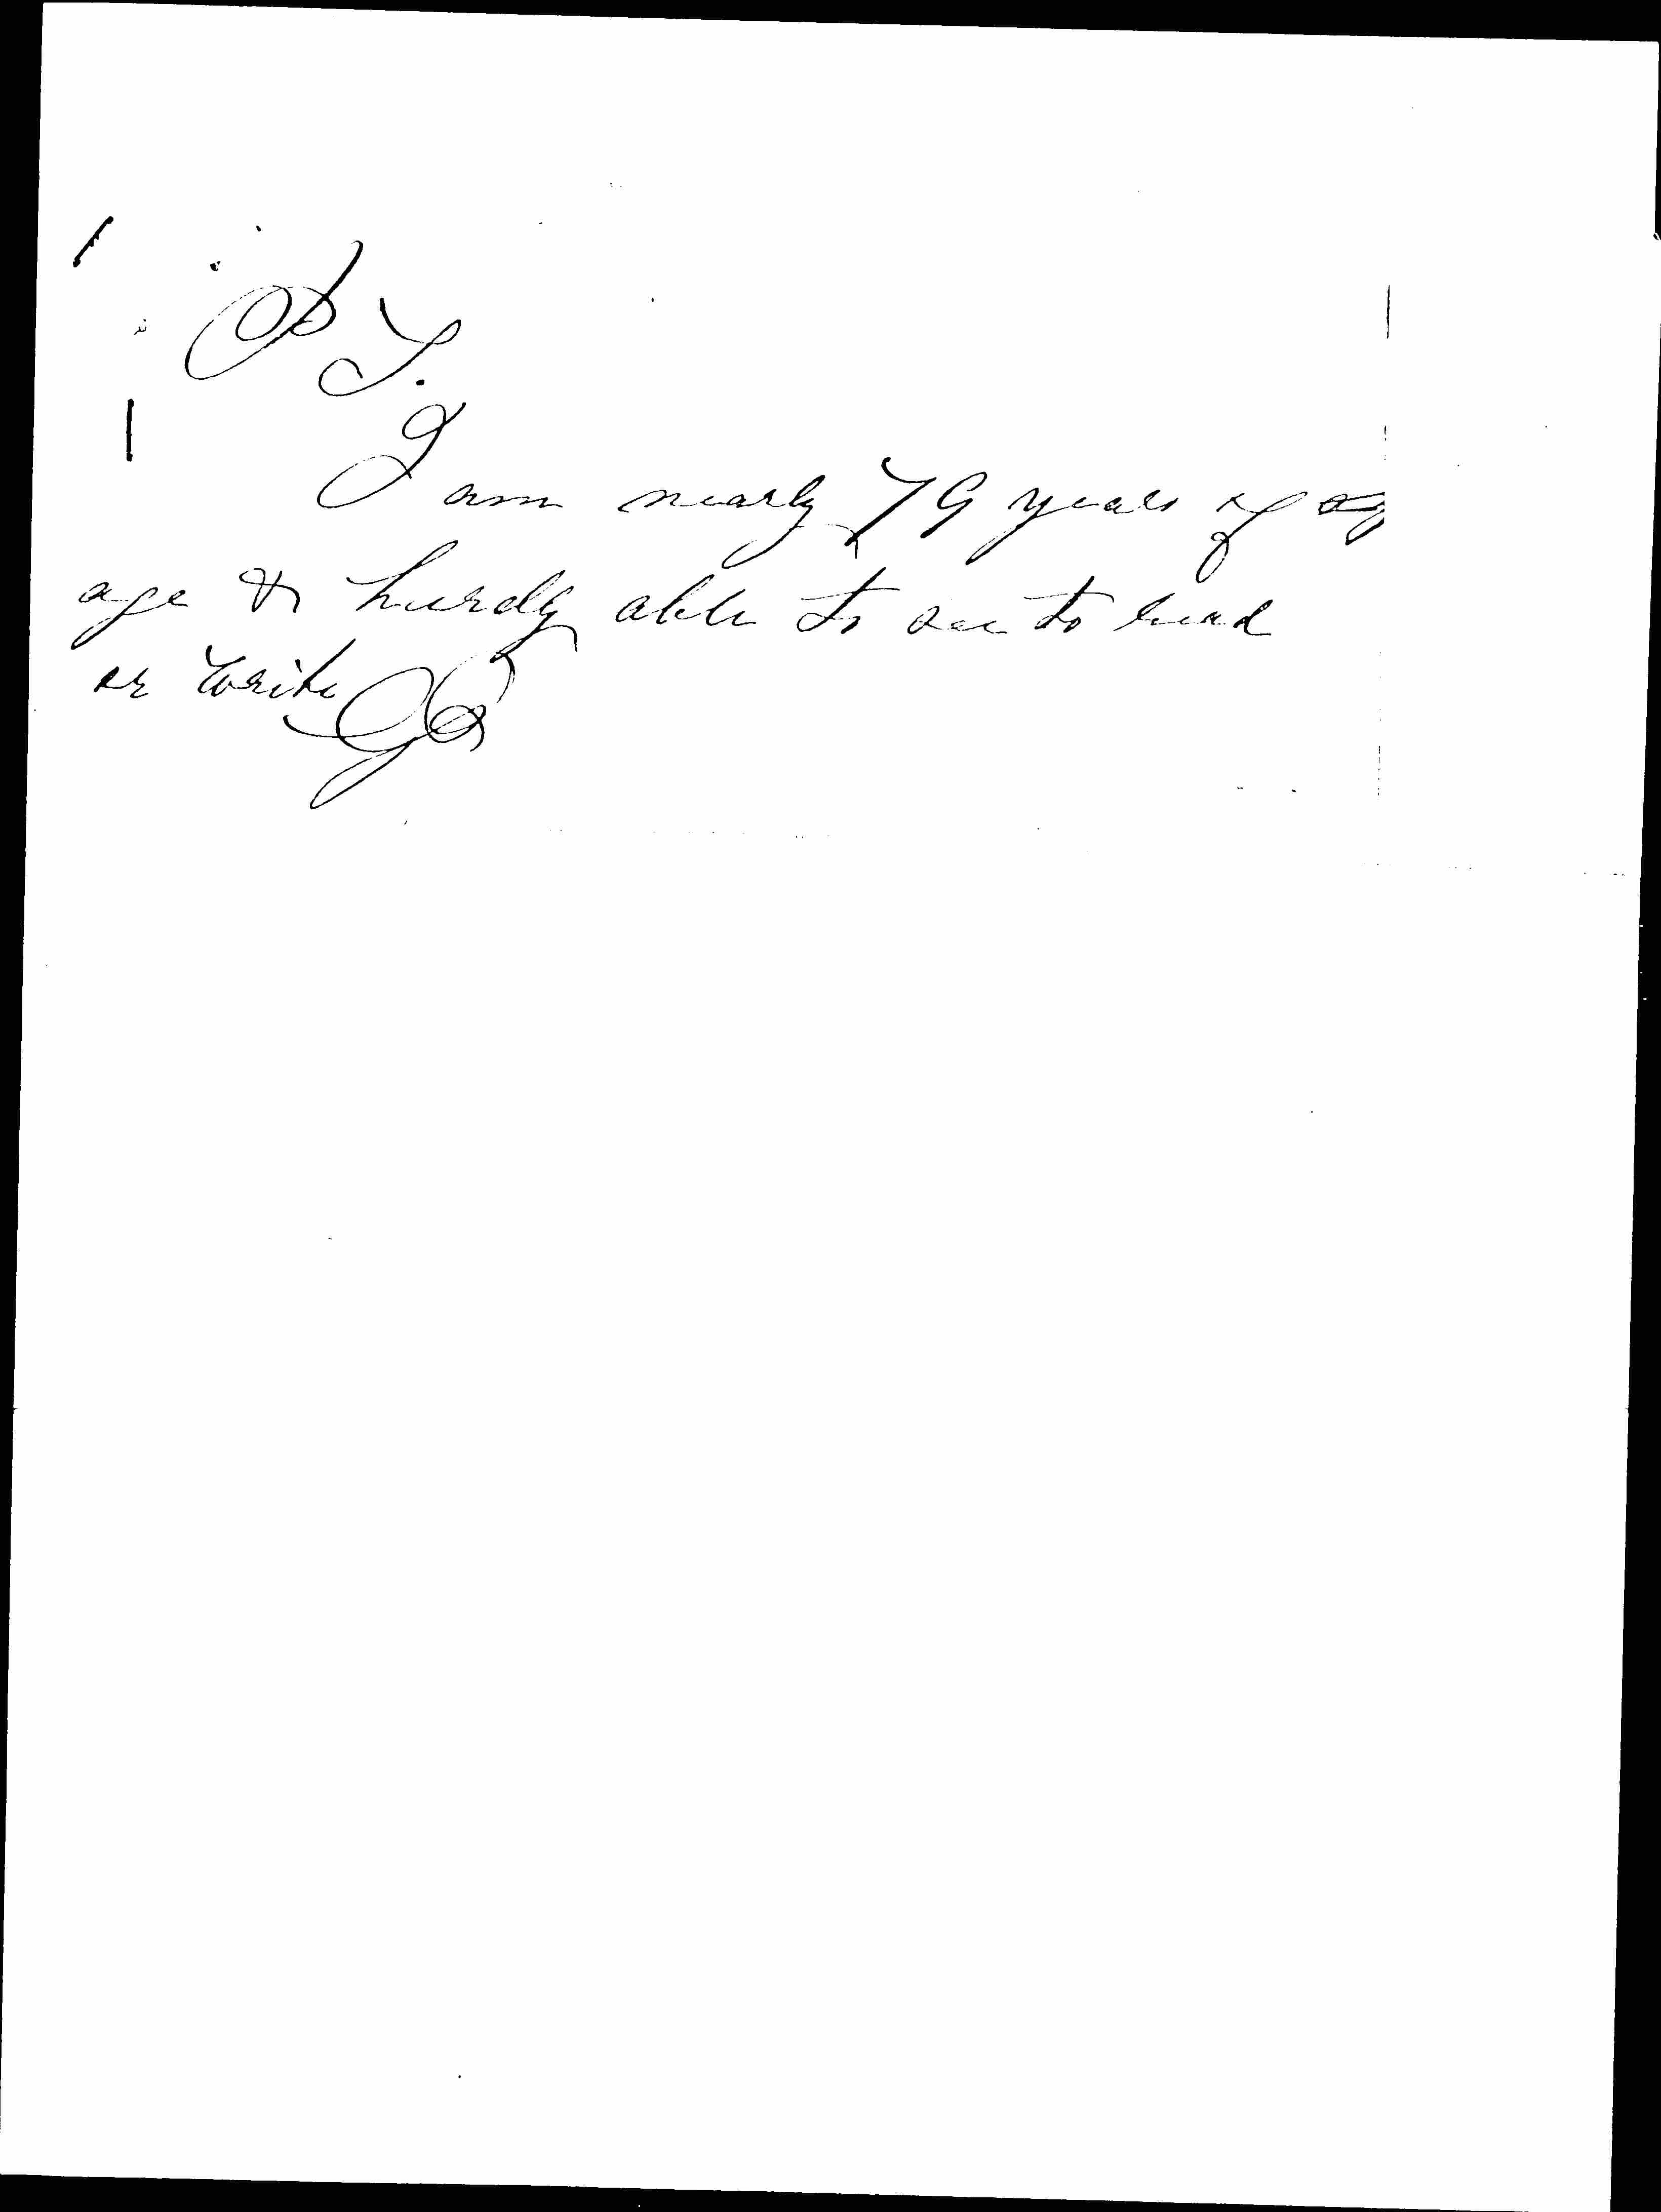 P S.
I am nearly 79 years of ag
age & hurdly able to see to read
or write